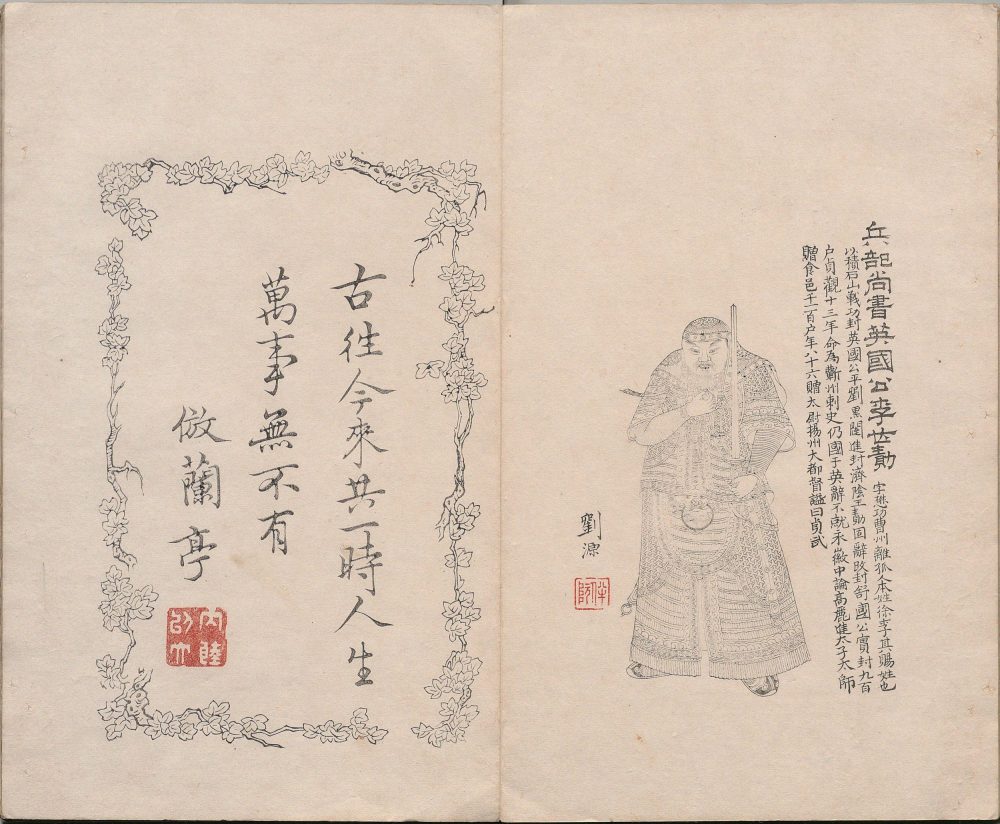 兵部尚書英國公李世勣 字懋功曹州離狐人本姓徐李其賜姓也
以積石山戰功封英國公平劉黑闥進封濟陰王勣固辭改封舒國公實封九百
户貞觀十三年命為蘄州刺史仍國于英辭不就永徽中論高麗進太子太師
贈食邑千一百户年八十六贈太尉揚州大都督謚曰貞武
劉源
伴阮
古徃今來共一時人生
萬事無不有
倣蘭亭